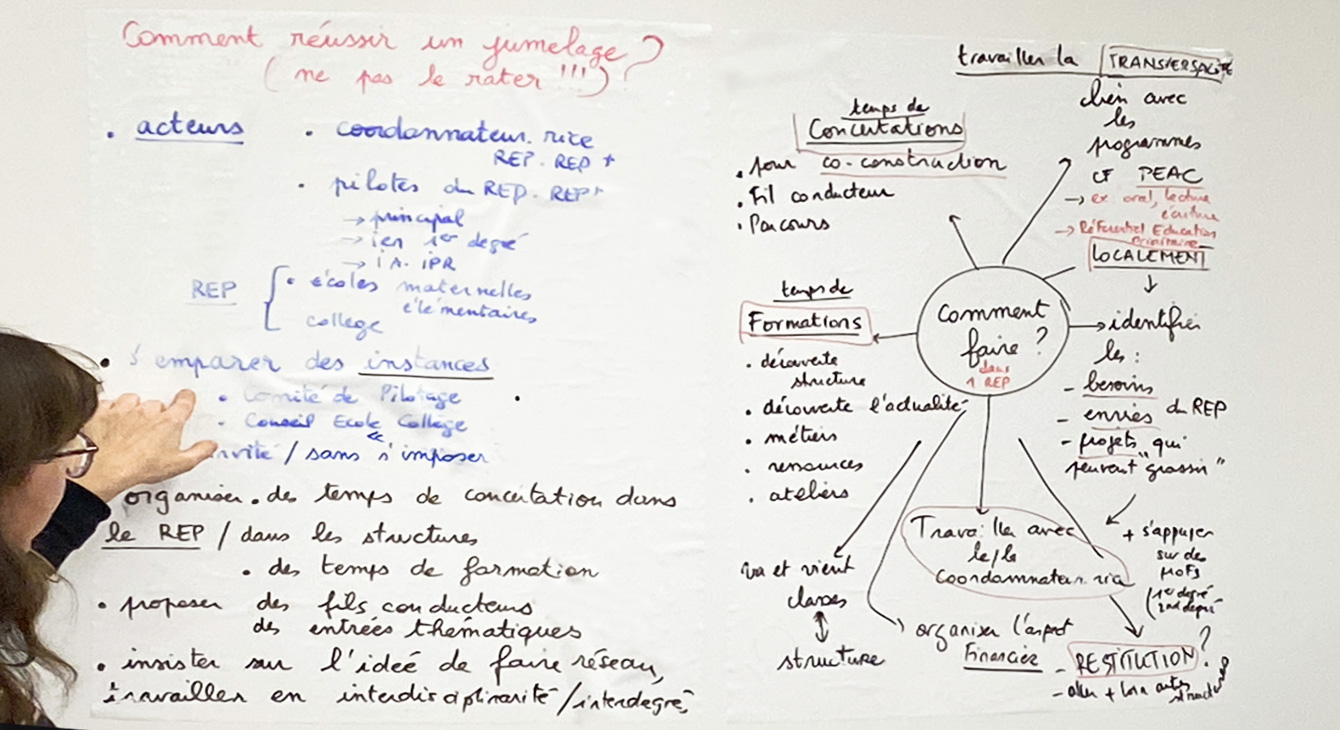 Comment réussir un jumelage ?
(ne pas le rater !!!)
. acteurs
. coordonnateur.rice
REP. REP +
. pilotes du REP. REP+
→ principal
→ ien 1er degré
→ IA. IPR
REP
. écoles maternelles
élémentaires
college
. s'emparer des instances
. Comité de Pilotage
. Conseil Ecole College
invité / sans s'imposer
organiser . des temps de concertation dans
le REP / dans les structures
. des temps de formation
. proposer des fils conducteurs
des entrées thématiques
. insister sur l'idée de faire réseau,
travailler en interdisciplinarité / interdegré,
travailler la TRANSVERSALITE
lien avec
les
programmes
CF PEAC
→ ex oral, lecture
écriture
→ Référentiel Education
prioritaire
LOCALEMENT
temps de
Concertations
. pour co-construction
. Fil conducteur
. Parcours
temps de
Formations
. découverte
structure
. découverte l'actualité
. métiers
. ressources
. ateliers
Comment
faire ?
dans
1 REP
identifier
les :
- besoins
- envies du REP
- projets qui
peuvent "grossir"
+ s'appuyer
sur des
(1er degré
2nd degré
Travailler avec
le/la
Coordonnateur.rice
va et vient
classes
structure
organiser l'aspect
Financier
- RESTITUTION ?
- aller + loin autres
structures